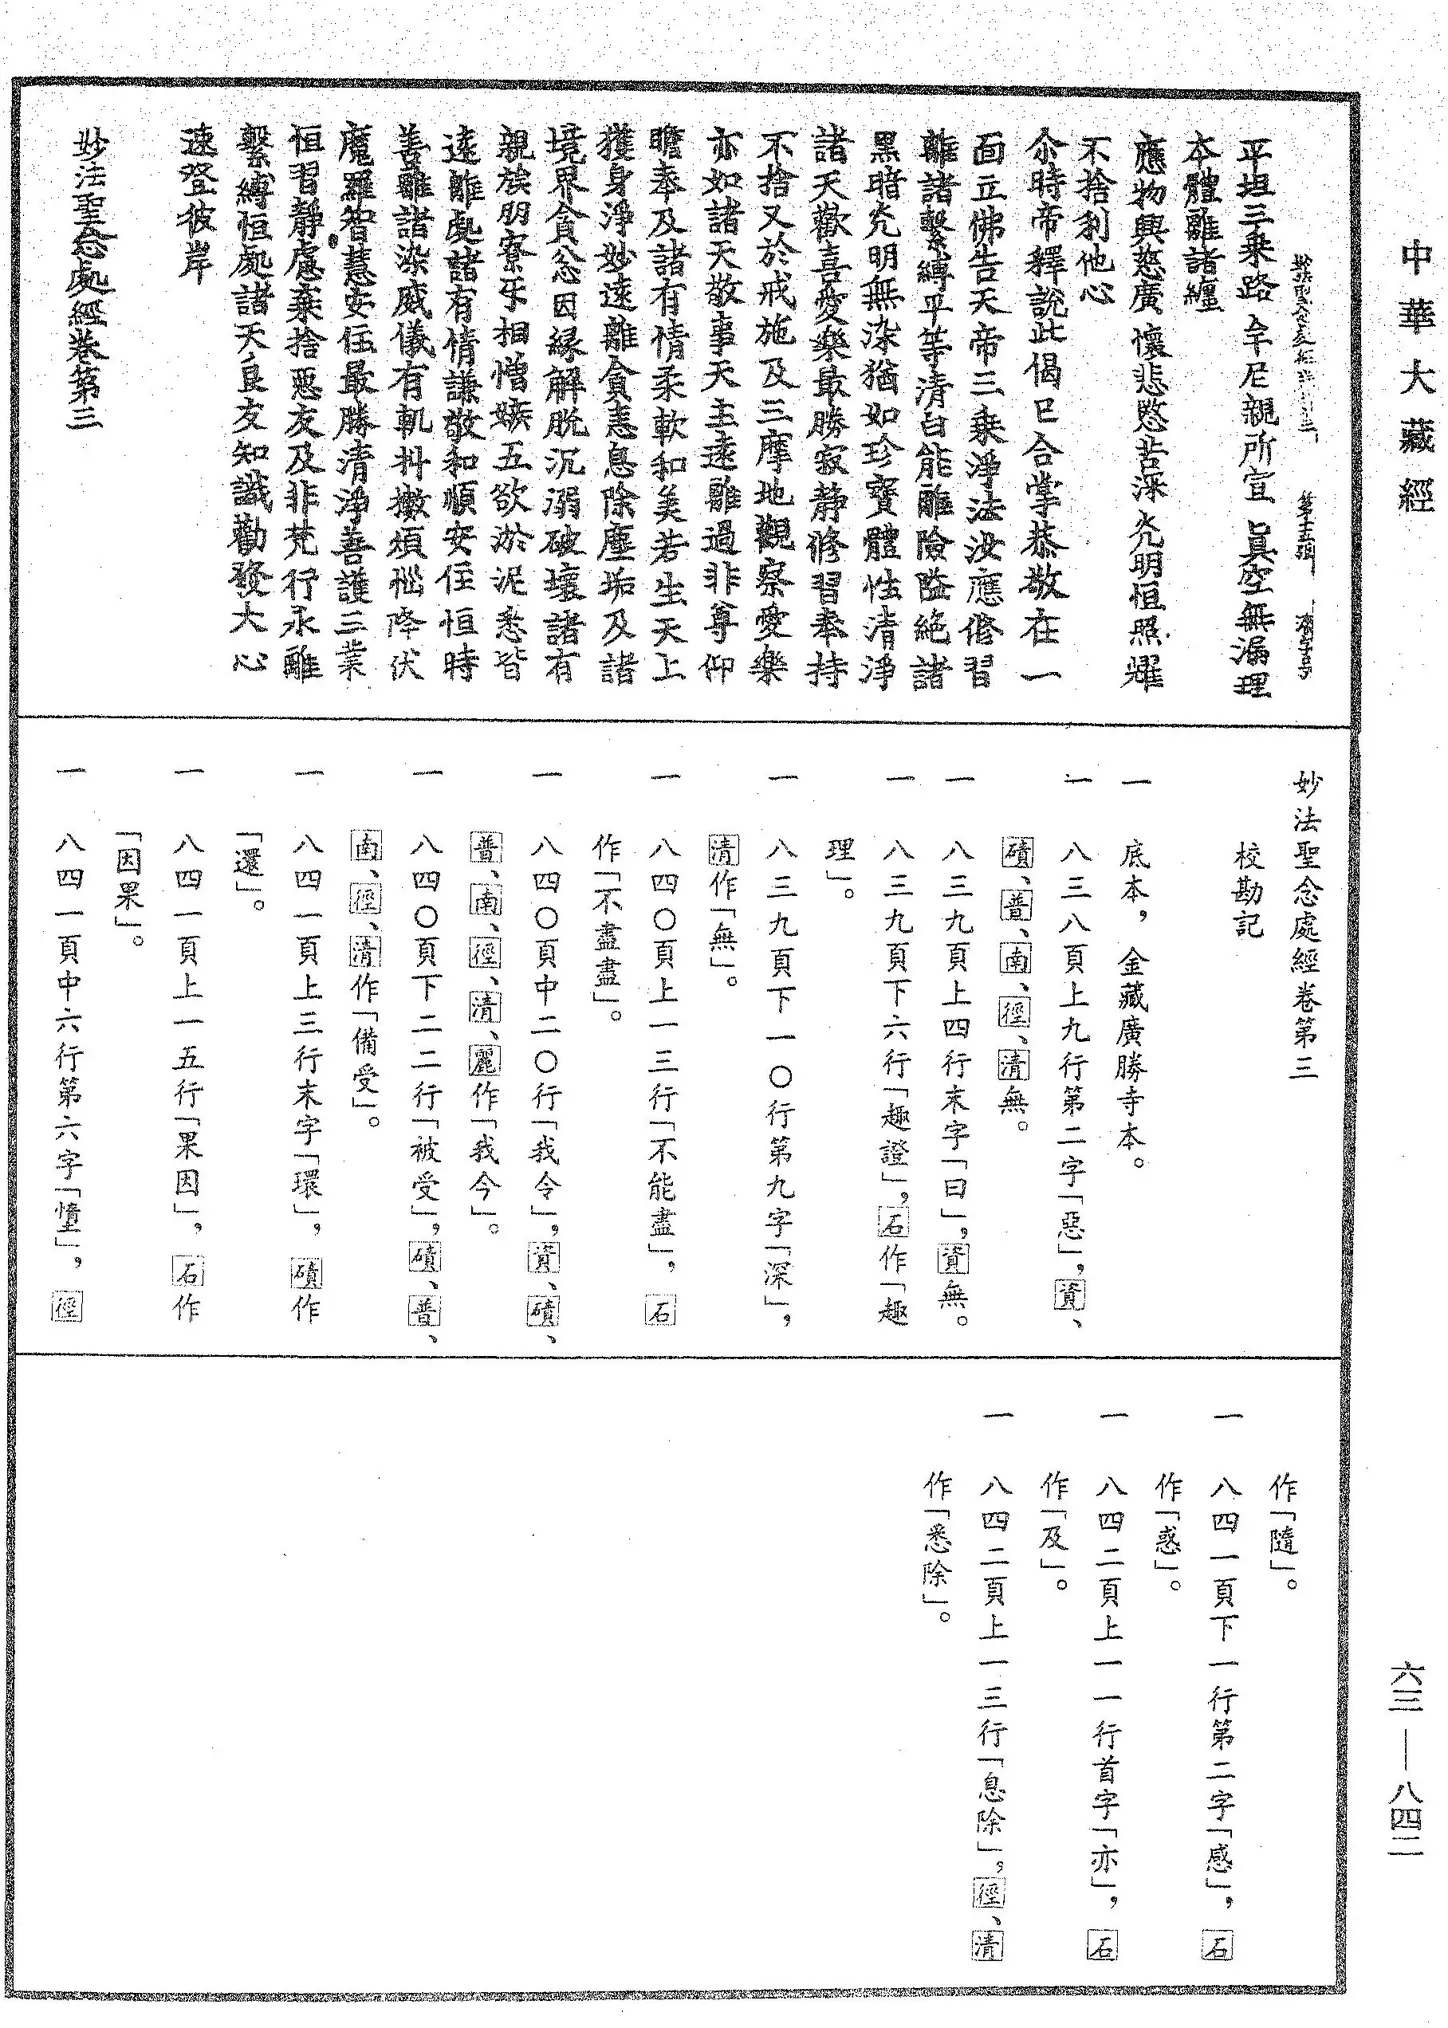 中華大藏經
妙法聖念處經卷第三
平坦三乗路 牟尼親所宣 真空無漏理
本體離諸纏
應物興慈廣 懷悲愍苦深 光明恒照耀
不捨利他心
尒時帝釋說此偈已合掌恭敬在一
面立佛告天帝三乗淨法汝應修習
離諸繫縛平等清白能離險隘絶諸
黑暗光明無染猶如珍寶體性清淨
諸天歡喜愛樂最勝寂静修習奉持
不捨又於戒施及三摩地觀察愛樂
亦如諸天敬事天主遠離過非尊仰
瞻奉及諸有情柔軟和美若生天上
獲身淨妙遠離貪恚息除塵垢及諸
境界貪忿因緣解脫沉溺破壞諸有
親族朋寮乎相憎嫉五欲淤泥悉皆
遠離處諸有情謙敬和順安住恒時
善離諸染威儀有軌抖擻煩惱降伏
魔羅智慧安住最勝清淨善護三業
恒習靜慮棄捨惡友及非梵行永離
繫縛恒處諸天良友知識勸發大心
速登彼岸
妙法聖念處經卷第三
妙法聖念處經卷第三
校勘記
一 底本，金藏廣勝寺本。
一 八三八頁上九行第二字「惡」，資、
磧、普、南、徑、清無。
一 八三九頁上四行末字「曰」，資無。
一 八三九頁下六行「趣證」，石作「趣
理」。
一 八三九頁下一〇行第九字「深」，
清作「無」。
一 八四〇頁上一三行「不能盡」，石
作「不盡盡」。
一 八四〇頁中二〇行「我令」，資、磧、
普、南、徑、清、麗作「我今」。
一 八四〇頁下二二行「被受」，磧、普、
南、徑、清作「備受」。
一 八四一頁上三行末字「環」，磧作
「還」。
一 八四一頁上一五行「果因」，石作
「因果」。
一 八四一頁中六行第六字「憧」，徑
作「隨」。
一 八四一頁下一行第二字「感」，石
作「惑」。
一 八四二頁上一一行首字「亦」，石
作「及」。
一 八四二頁上一三行「息除」，徑、清
作「悉除」。
六三—八四二